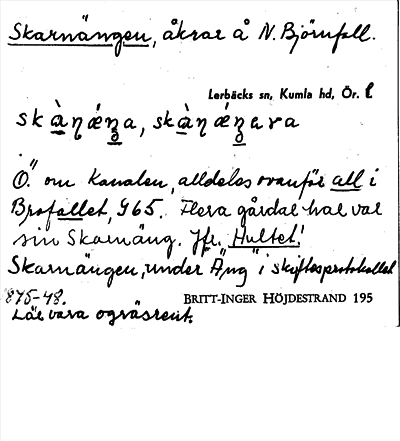 Skarnängen, åkrar å N. Björnfall.
Lerbäcks sn, Kumla hd, Ör. l
skàɳǽŋa, skàɳǽŋara
Ö. om Kanalen, alldeles ovanför all i
Brofallet, 965. Flera gårdar har var
sin Skarnäng. Jfr. Hultet!
Skarnängen, under "Äng" i skiftesprotokollet
1875-48. BRITT-INGER HÖJDESTRAND 195
Lär vara ogräsrent.